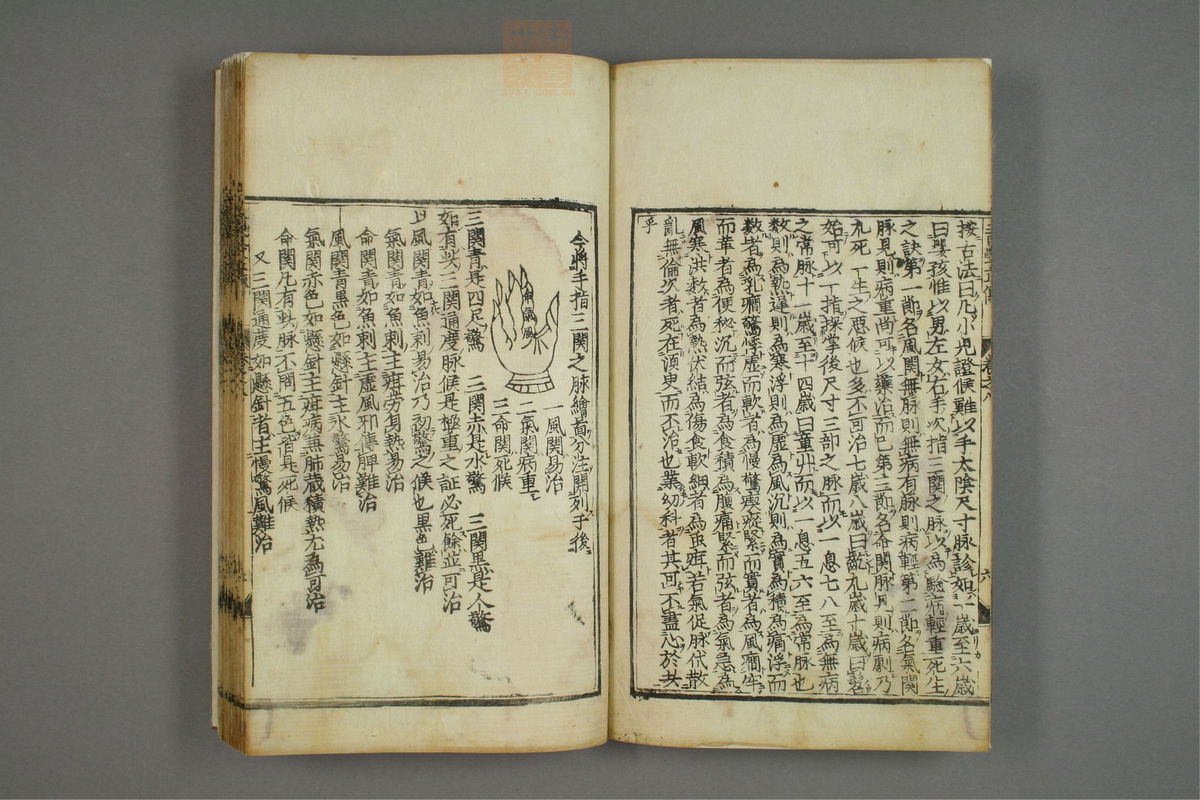 按古法曰凡小児證候難以手太陰尺寸脉診如一歳至六歳
曰嬰孩惟以男左女右手次指三関之脉以為驗病輕重死生
之訣第一節名風関無脉則無病有脉則病輕第二節名氣関
脉見則病重尚可以藥治而已第三節名命関脉見則病劇乃
九死一生之惡候也多不可治七歳八歳曰齔九歳十歳曰髫
始可以一指探掌後尺寸三部之脉而以一息七八至為無病
之常脉十一歳至十四歳曰童丱而以一息五六至為常脉也
数則為熱遅則為寒浮則為虚為風沉則為實為積為痛浮而
数者為乳癇驚悸虚而軟者為慢驚瘈瘲緊而實者為風癇牢
而革者為便秘沉而弦者為食積為腹痛緊而弦者為氣急為
風寒洪数者為熱伏結為傷食軟細者為虫疳若氣促脉代散
亂無倫次者死在須臾而不治也業幼科者其可不盡心於共
乎
今將手指三関之脉繪畣分注開列于後
命氣風
一風関易治
二氣関病重
三命関死候
三関青是四足驚　三関赤是水驚　三関黒是人驚
如有此三関通度脉候是極重之証必死餘並可治
風関青如魚刺易治乃初驚之候也黒色難治
氣関青如魚刺主疳劳身熱易治
命関青如魚刺主虚風邪傳脾難治
風関青黒色如懸針主水驚易治
氣関赤色如懸針主疳病兼肺蔵積熱尤為可治
命関凡有此脉不問五色皆是死候
又三関通度如懸針者主慢驚風難治